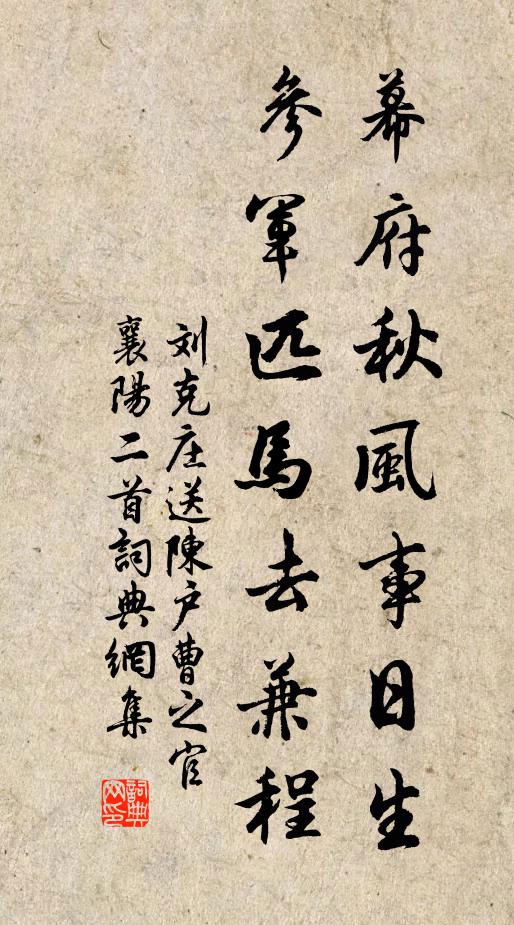 幕府秋風事日生
參軍匹馬去兼程
刘克庄送陳户曹之官
襄陽二首詞典網集
詞典
网印